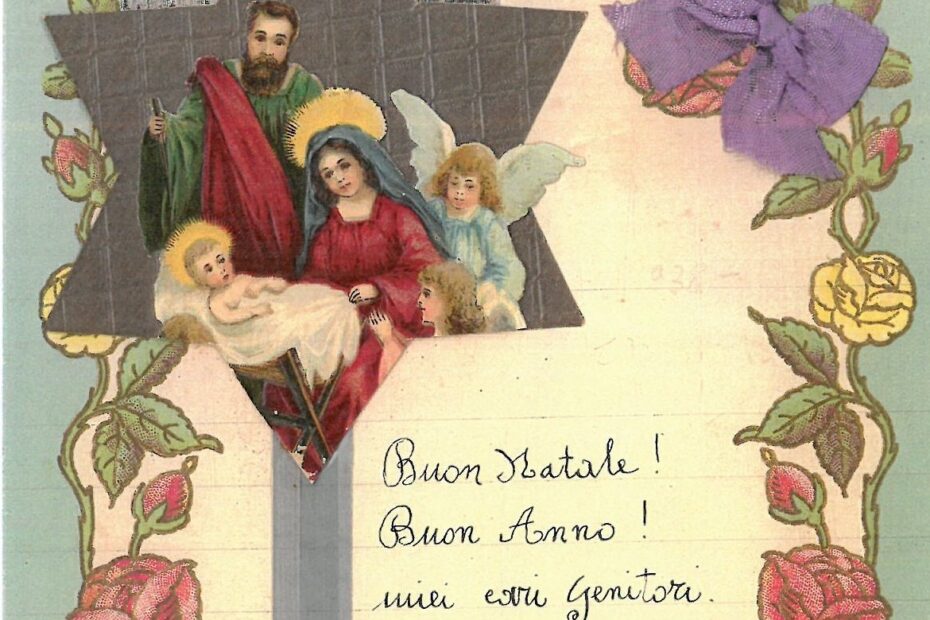 Buon Natale!
Buon Anno!
miei cari Genitori.